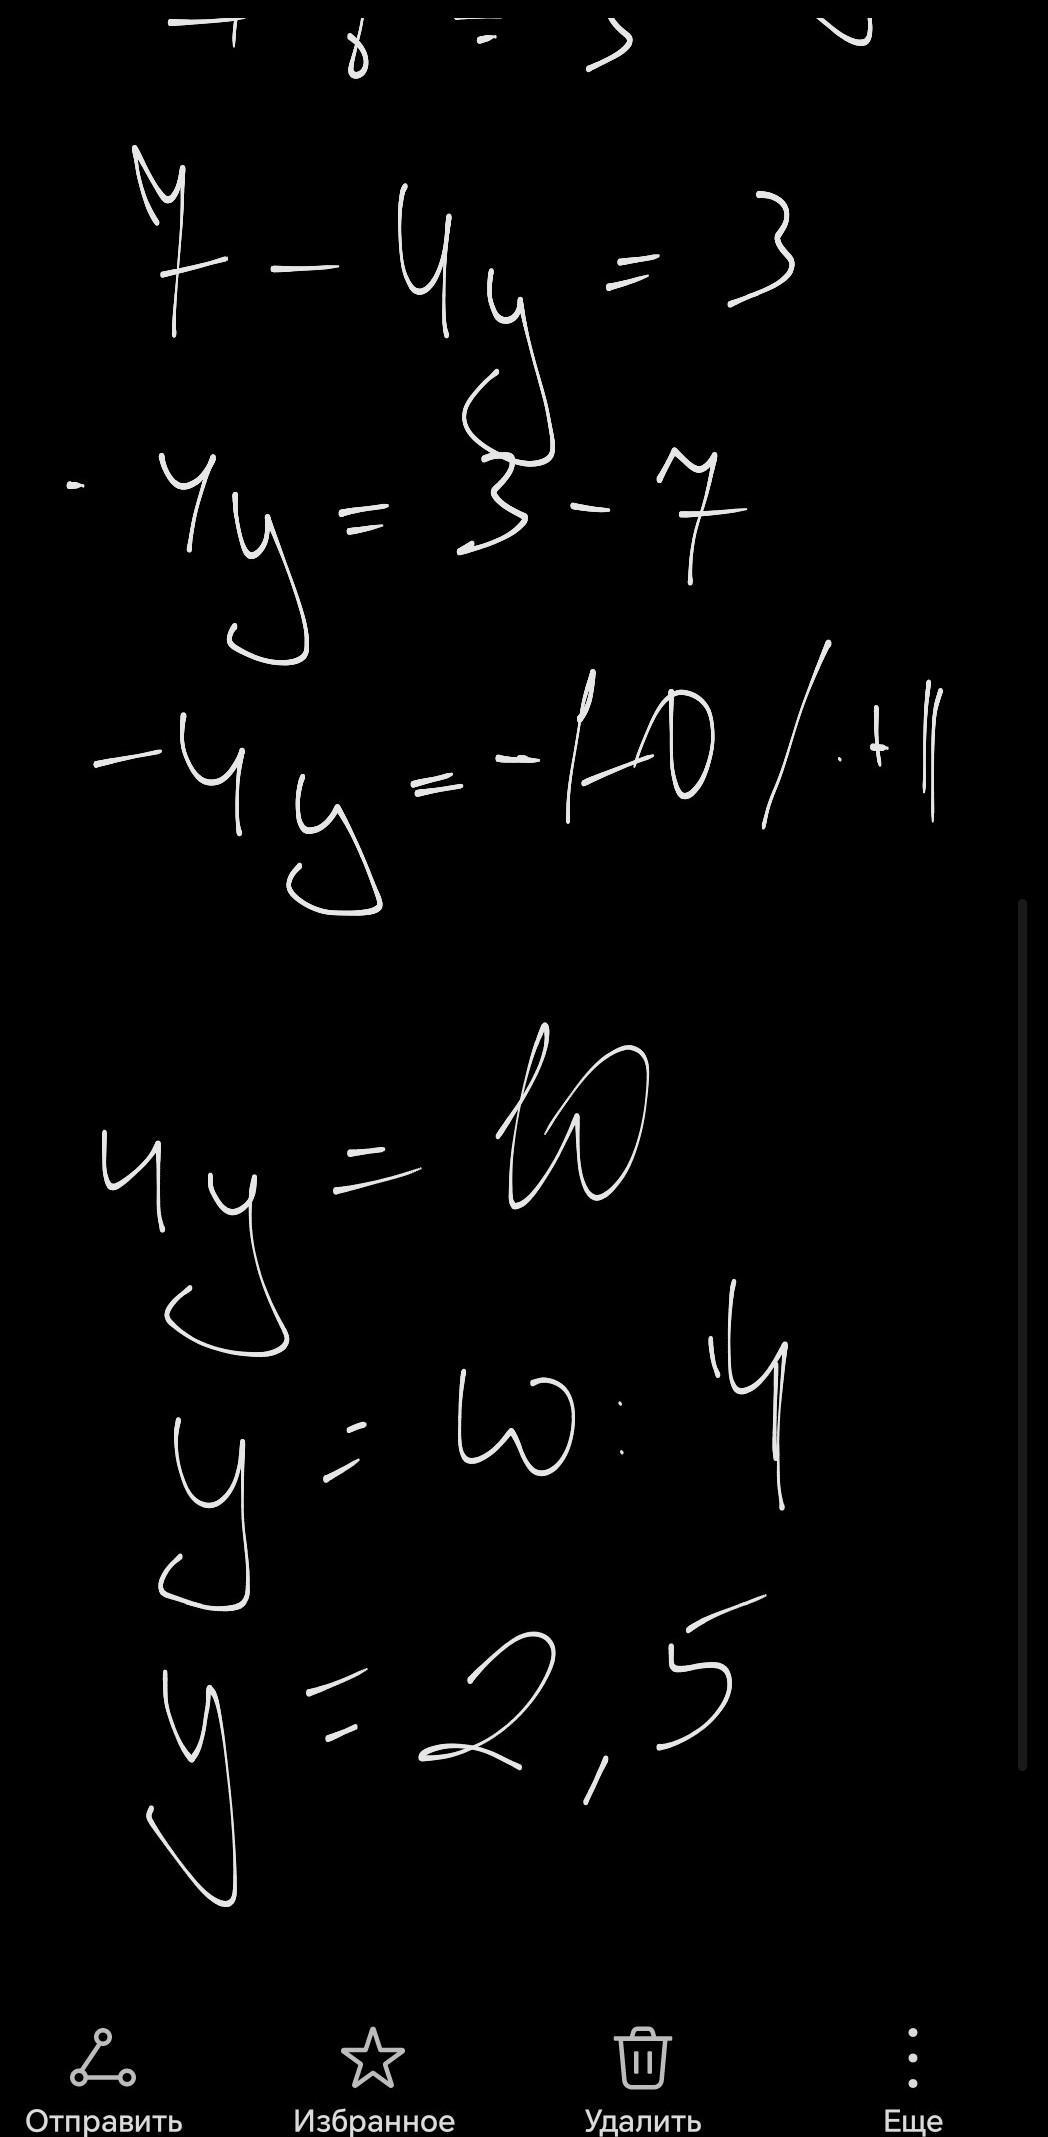 7 - 4y = 3
- 4y = 3 - 7
- 4y = -10 / · +11
4y = 10
y = 10 : 4
y = 2,5
Отправить Избранное Удалить Еще